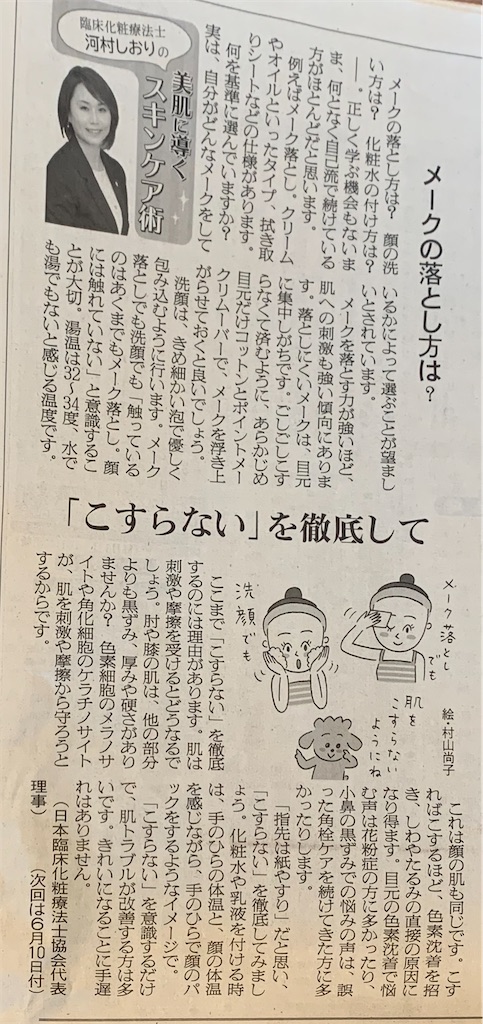 臨床化粧療法士
河村しおりの
美肌に導く
スキンケア術
メークの落とし方は?
メークの落とし方は? 顔の洗
い方は? 化粧水の付け方は?
――。正しく学ぶ機会もないま
ま、何となく自己流で続けている
方がほとんどだと思います。
例えばメーク落とし。クリーム
やオイルといったタイプ、拭き取
りシートなどの仕様があります。
何を基準に選んでいますか?
実は、自分がどんなメークをして
いるかによって選ぶことが望まし
いとされています。
メークを落とす力が強いほど、
肌への刺激も強い傾向にありま
す。落としにくいメークは、目元
に集中しがちです。ごしごしこす
らなくて済むように、あらかじめ
目元だけコットンとポイントメー
クリムーバーで、メークを浮き上
がらせておくと良いでしょう。
洗顔は、きめ細かい泡で優しく
包み込むように行います。メーク
落としでも洗顔でも「触っている
のはあくまでもメーク落とし。顔
には触れていない」と意識するこ
とが大切。湯温は32~34度、水で
も湯でもないと感じる温度です。
「こすらない」を徹底して
メーク落とし
でも
洗顔でも
肌を
こすらない
ようにね
絵・村山尚子
ここまで「こすらない」を徹底
するのには理由があります。肌は
刺激や摩擦を受けるとどうなるで
しょう。肘や膝の肌は、他の部分
よりも黒ずみ、厚みや硬さがあり
ませんか? 色素細胞のメラノサ
イトや角化細胞のケラチノサイト
が、肌を刺激や摩擦から守ろうと
するからです。
これは顔の肌も同じです。こす
ればこするほど、色素沈着を招
き、しわやたるみの直接の原因に
なり得ます。目元の色素沈着で悩
む声は花粉症の方に多かったり、
小鼻の黒ずみでの悩みの声は、誤
った角栓ケアを続けてきた方に多
かったりします。
「指先は紙やすり」だと思い、
「こすらない」を徹底してみまし
ょう。化粧水や乳液を付ける時
は、手のひらの体温と、顔の体温
を感じながら、手のひらで顔のパ
ックをするようなイメージで。
「こすらない」を意識するだけ
で、肌トラブルが改善する方は多
いです。きれいになることに手遅
れはありません。
(日本臨床化粧療法士協会代表
理事) (次回は6月10日付)